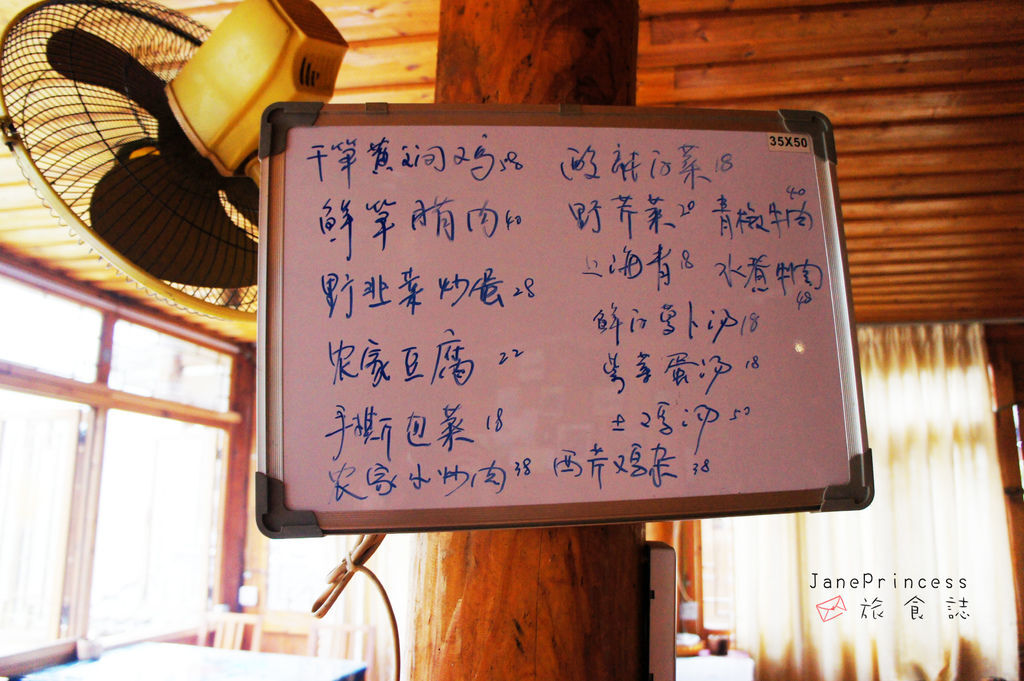 35X50
干笋黄闷鸡 58
鲜笋腊肉 40
野韭菜炒蛋 28
农家豆腐 22
手撕包菜 18
农家小炒肉 38
酸辣汤菜 18
野芹菜 20
上海青 18
鲜汤萝卜汤 18
蛋汤 18
土鸡汤 50
西芹鸡杂 38
青椒牛肉 40
水煮牛肉 48
JanePrincess
旅食誌